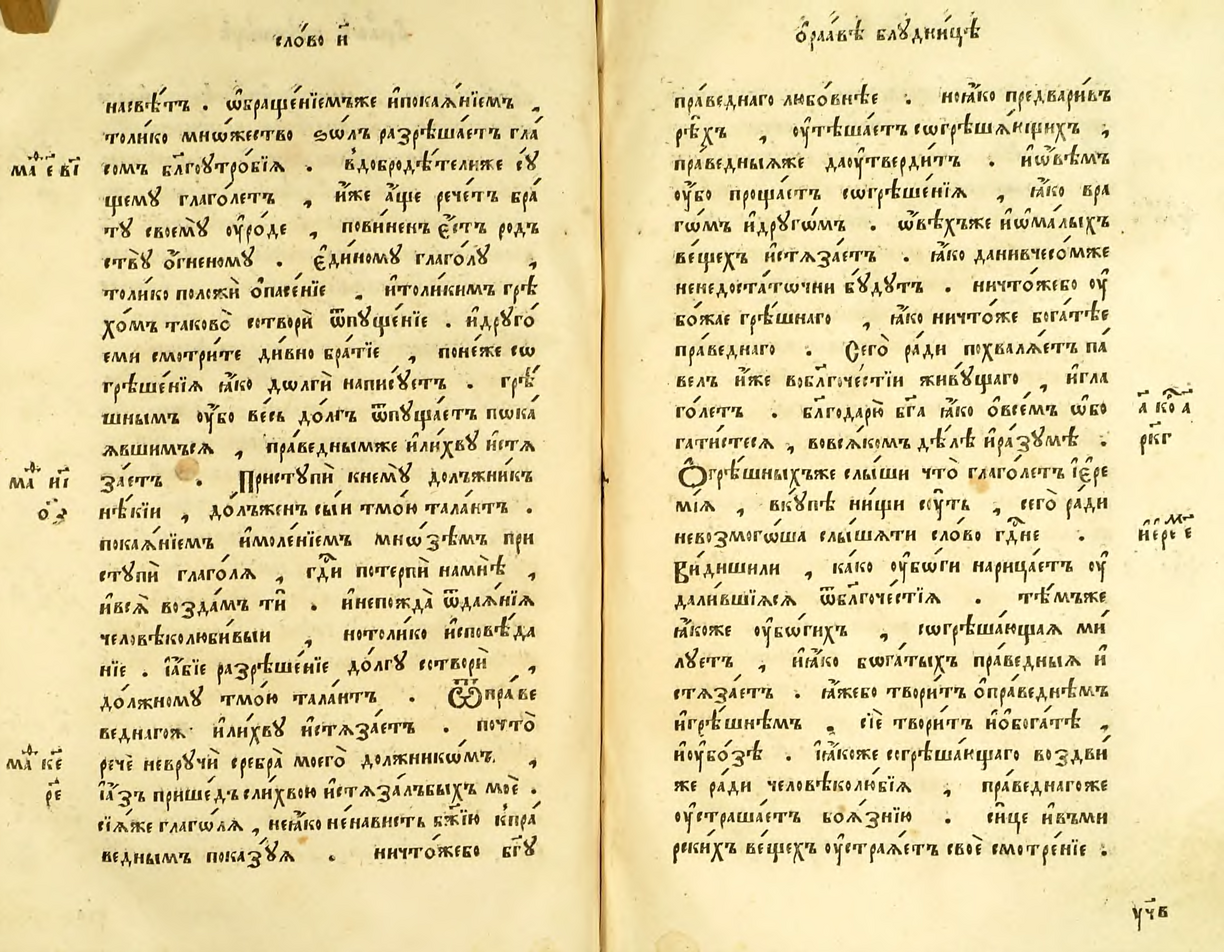 сло́во и҃
насвѣ́тъ . ѡ҆браще́нїемъже и҆покаѧ́нїемъ ,
толи́ко мнѡ́жество ѕѡ́лъ разрѣша́етъ гла́
сомъ бл҃гоутро́бїѧ . вдобродѣ́телиже сꙋ́
щемꙋ глаго́летъ , и҆́же а҆́ще рече́тъ бра́
тꙋ своемꙋ̀ ᲂу҆ро́де , пови́ненъ є҆́стъ родъ
ствꙋ̀ ѻ҆́гненомꙋ . є҆ди́номꙋ глаго́лꙋ ,
толи́ко положѝ ѻ҆пасе́нїе , и҆толи́кимъ грѣ
хо́мъ таково̀ сотворѝ ѿпꙋще́нїе . и҆дрꙋго́
еми смотри́те ди́вно бра́тїе , поне́же со
грѣше́нїѧ ꙗ҆́ко до́лги напи́сꙋетъ . грѣ́
шнымъ ᲂу҆́бо весь до́лгъ ѿпꙋща́етъ пока́
ѧвшимъсѧ , пра́веднымже и҆ли́хвꙋ и҆стѧ
за́етъ . Пристꙋпѝ кнемꙋ̀ должни́къ
нѣ́кїи , до́лъженъ сы́и тмо́ю тала́нтъ .
покаѧ́нїемъ и҆моле́нїемъ мно́зѣмъ при
стꙋпѝ глаго́лѧ , гдⷭ҇и потерпѝ намнѣ̀ ,
и҆всѧ̀ возда́мъ тѝ . и҆непожда̀ ѿдаѧ́нїѧ
человѣколюби́выи , нотоли́ко и҆сповѣ́да
нїе . і҆а҆́бїе разрѣше́нїе до́лгꙋ сотворѝ ,
до́лжномꙋ тмо́ю тала́нтъ . Ѿпра́ве
веднагож и҆ли́хвꙋ и҆стѧза́етъ . почто̀
речѐ неврꙋчѝ сребра̀ моего̀ должнико́мъ ,
і҆а҆́зъ прише́дъ сли́хвою и҆стѧза́лъбыхъ моѐ .
сїѧ́же глаго́лѧ , неꙗ҆́ко не́нависть бж҃їю кпра́
веднымъ пока́зꙋѧ . ничто́жебо бг҃ꙋ
маⷴ҇ е҃ в҃і
маⷴ҇ и҃і
ѻ҃з
маⷴ҇ к҃е
р҃е
ѻ҆раа́вѣ блꙋдни́цѣ
пра́веднаго любо́внѣе . ноꙗ҆́ко предвари́въ
рѣ́хъ , ᲂу҆тѣша́етъ согрѣша́ющихъ ,
пра́ведныѧже даᲂу҆тверди́тъ . и҆ѻ҆вѣ́мъ
ᲂу҆́бо проща́етъ согрѣше́нїѧ , ꙗ҆́ко вра
го́мъ и҆дрꙋго́мъ . ѻ҆вѣ́хъже и҆ѡма́лыхъ
ве́щехъ и҆стѧза́етъ . ꙗ҆́ко данивчесо́мже
ненедоста́точни бꙋ́дꙋтъ . ничто́жебо ᲂу҆
бо́жае грѣ́шнаго , ꙗ҆́ко ничто́же бога́тѣе
пра́веднаго . Сего̀ ра́ди похвалѧ́етъ па́
велъ и҆́же вобл҃гоче́стїи живꙋ́щаго , и҆гла
го́летъ . бл҃годарю̀ бг҃а ꙗ҆́ко ѻ҆всемъ ѡ҆бо
гати́стесѧ , вовсѧ́комъ дѣ́лѣ и҆ра́зꙋмѣ .
Ѻ҆грѣ́шныхъже слы́ши что̀ глаго́летъ і҆ере
мі́ѧ , вкꙋ́пѣ ни́щи сꙋ́ть , сего̀ ра́ди
невозмого́ша слы́шѧти сло́во гдⷭ҇не .
Ви́дишили , ка́ко ᲂу҆бо́ги нарица́етъ ᲂу҆
дали́вшїѧсѧ ѿбл҃гоче́стїѧ . тѣ́мъже
ꙗ҆́коже ᲂу҆бо́гихъ , согрѣша́ющаѧ ми́
лꙋетъ , и҆ꙗ҆́ко бога́тыхъ пра́ведныѧ и҆
стѧза́етъ . ꙗ҆́жебо твори́тъ ѻ҆пра́веднѣмъ
и҆грѣ́шнѣмъ , сїѐ твори́тъ и҆ѻ҆бога́тѣ ,
и҆ᲂу҆бо́зѣ . і҆ꙗ҆́коже согрѣша́ющаго воздви́
же ра́ди человѣколю́бїѧ , пра́веднагоже
ᲂу҆страша́етъ боѧ́знїю . си́це и҆въми
рскихъ ве́щехъ ᲂу҆страѧ́етъ своѐ смотре́нїе .
а҃ коⷬ҇ а҃
рк҃г
і҆ереⷨ҇ е҃
уч҃в